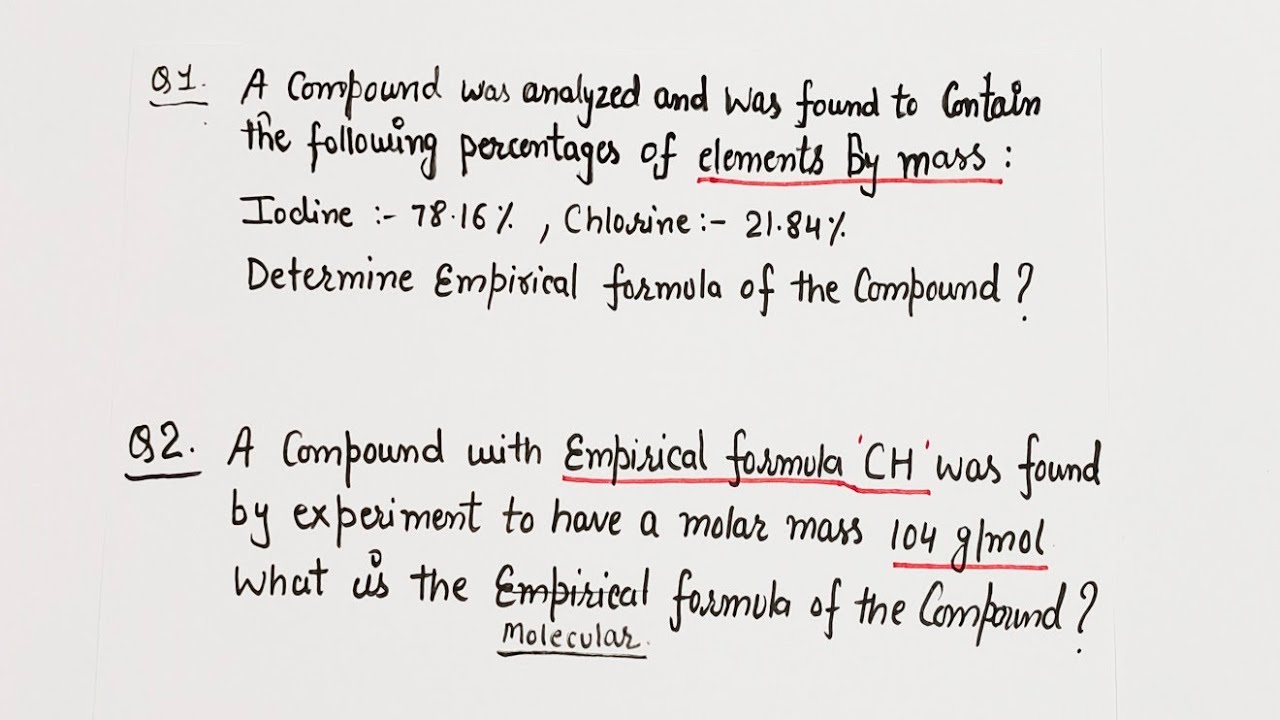 Q1. A Compound was analyzed and was found to Contain
the following percentages of elements By mass :
Iodine :- 78.16% , Chlorine :- 21.84%
Determine Empirical formula of the Compound ?
Q2. A Compound with Empirical formula 'CH' was found
by experiment to have a molar mass 104 g/mol
What is the Empirical formula of the Compound ?
Molecular.